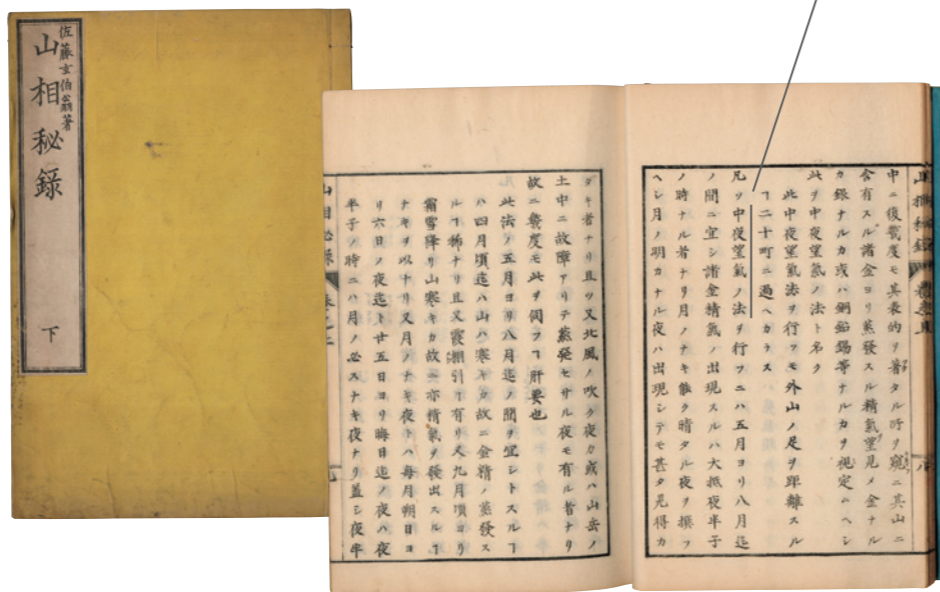 佐藤玄伯翁著
山相秘錄
下
中ニ後幾度モ其表的ヲ著タル所ヲ窺ニ其山ニ
含有スル諸金ヨリ蒸發スル精氣望見メ金ナル
カ銀ナルカ或ハ銅鉛錫等ナルカヲ視定ムヘシ
此ヲ中夜望氣ノ法ト名ク
此中夜望氣法ヲ行フモ外山ノ足ヲ距離スル
ヿ二十町ニ過ヘカラス
凡ソ中夜望氣ノ法ヲ行フニハ五月ヨリ八月迄
ノ間ニ宜シ諸金精氣ノ出現スルハ大抵夜半子
ノ時ナル者ナリ月ノナキ能ク晴タル夜ヲ撰フ
ヘシ月ノ明カナル夜ハ出現シテモ甚タ見得カ
タキ者ナリ且ツ又北風ノ吹ク夜カ或ハ山岳ノ
土中ニ故障アリテ蒸發セサル夜モ有ル者ナリ
故ニ幾度モ此ヲ伺フヿ肝要也
此法ノ五月ヨリ八月迄ノ間ヲ宜シトスルヿ
ハ四月頃迄ハ山ハ寒キカ故ニ金精ノ蒸發ス
ルヿ稀ナリ且又霞潮引ヿ有リ又九月頃ヨリ
霜雪降リ山寒キカ故ニ亦精氣ヲ發出スルヿ
ナキヲ以ナリ又月ノナキ夜トハ每月朔日ヨ
リ六日ノ夜迄ト廿五日ヨリ晦日迄ノ夜ハ夜
半子ノ時ニハ月ノ必スナキ夜ナリ蓋シ夜半